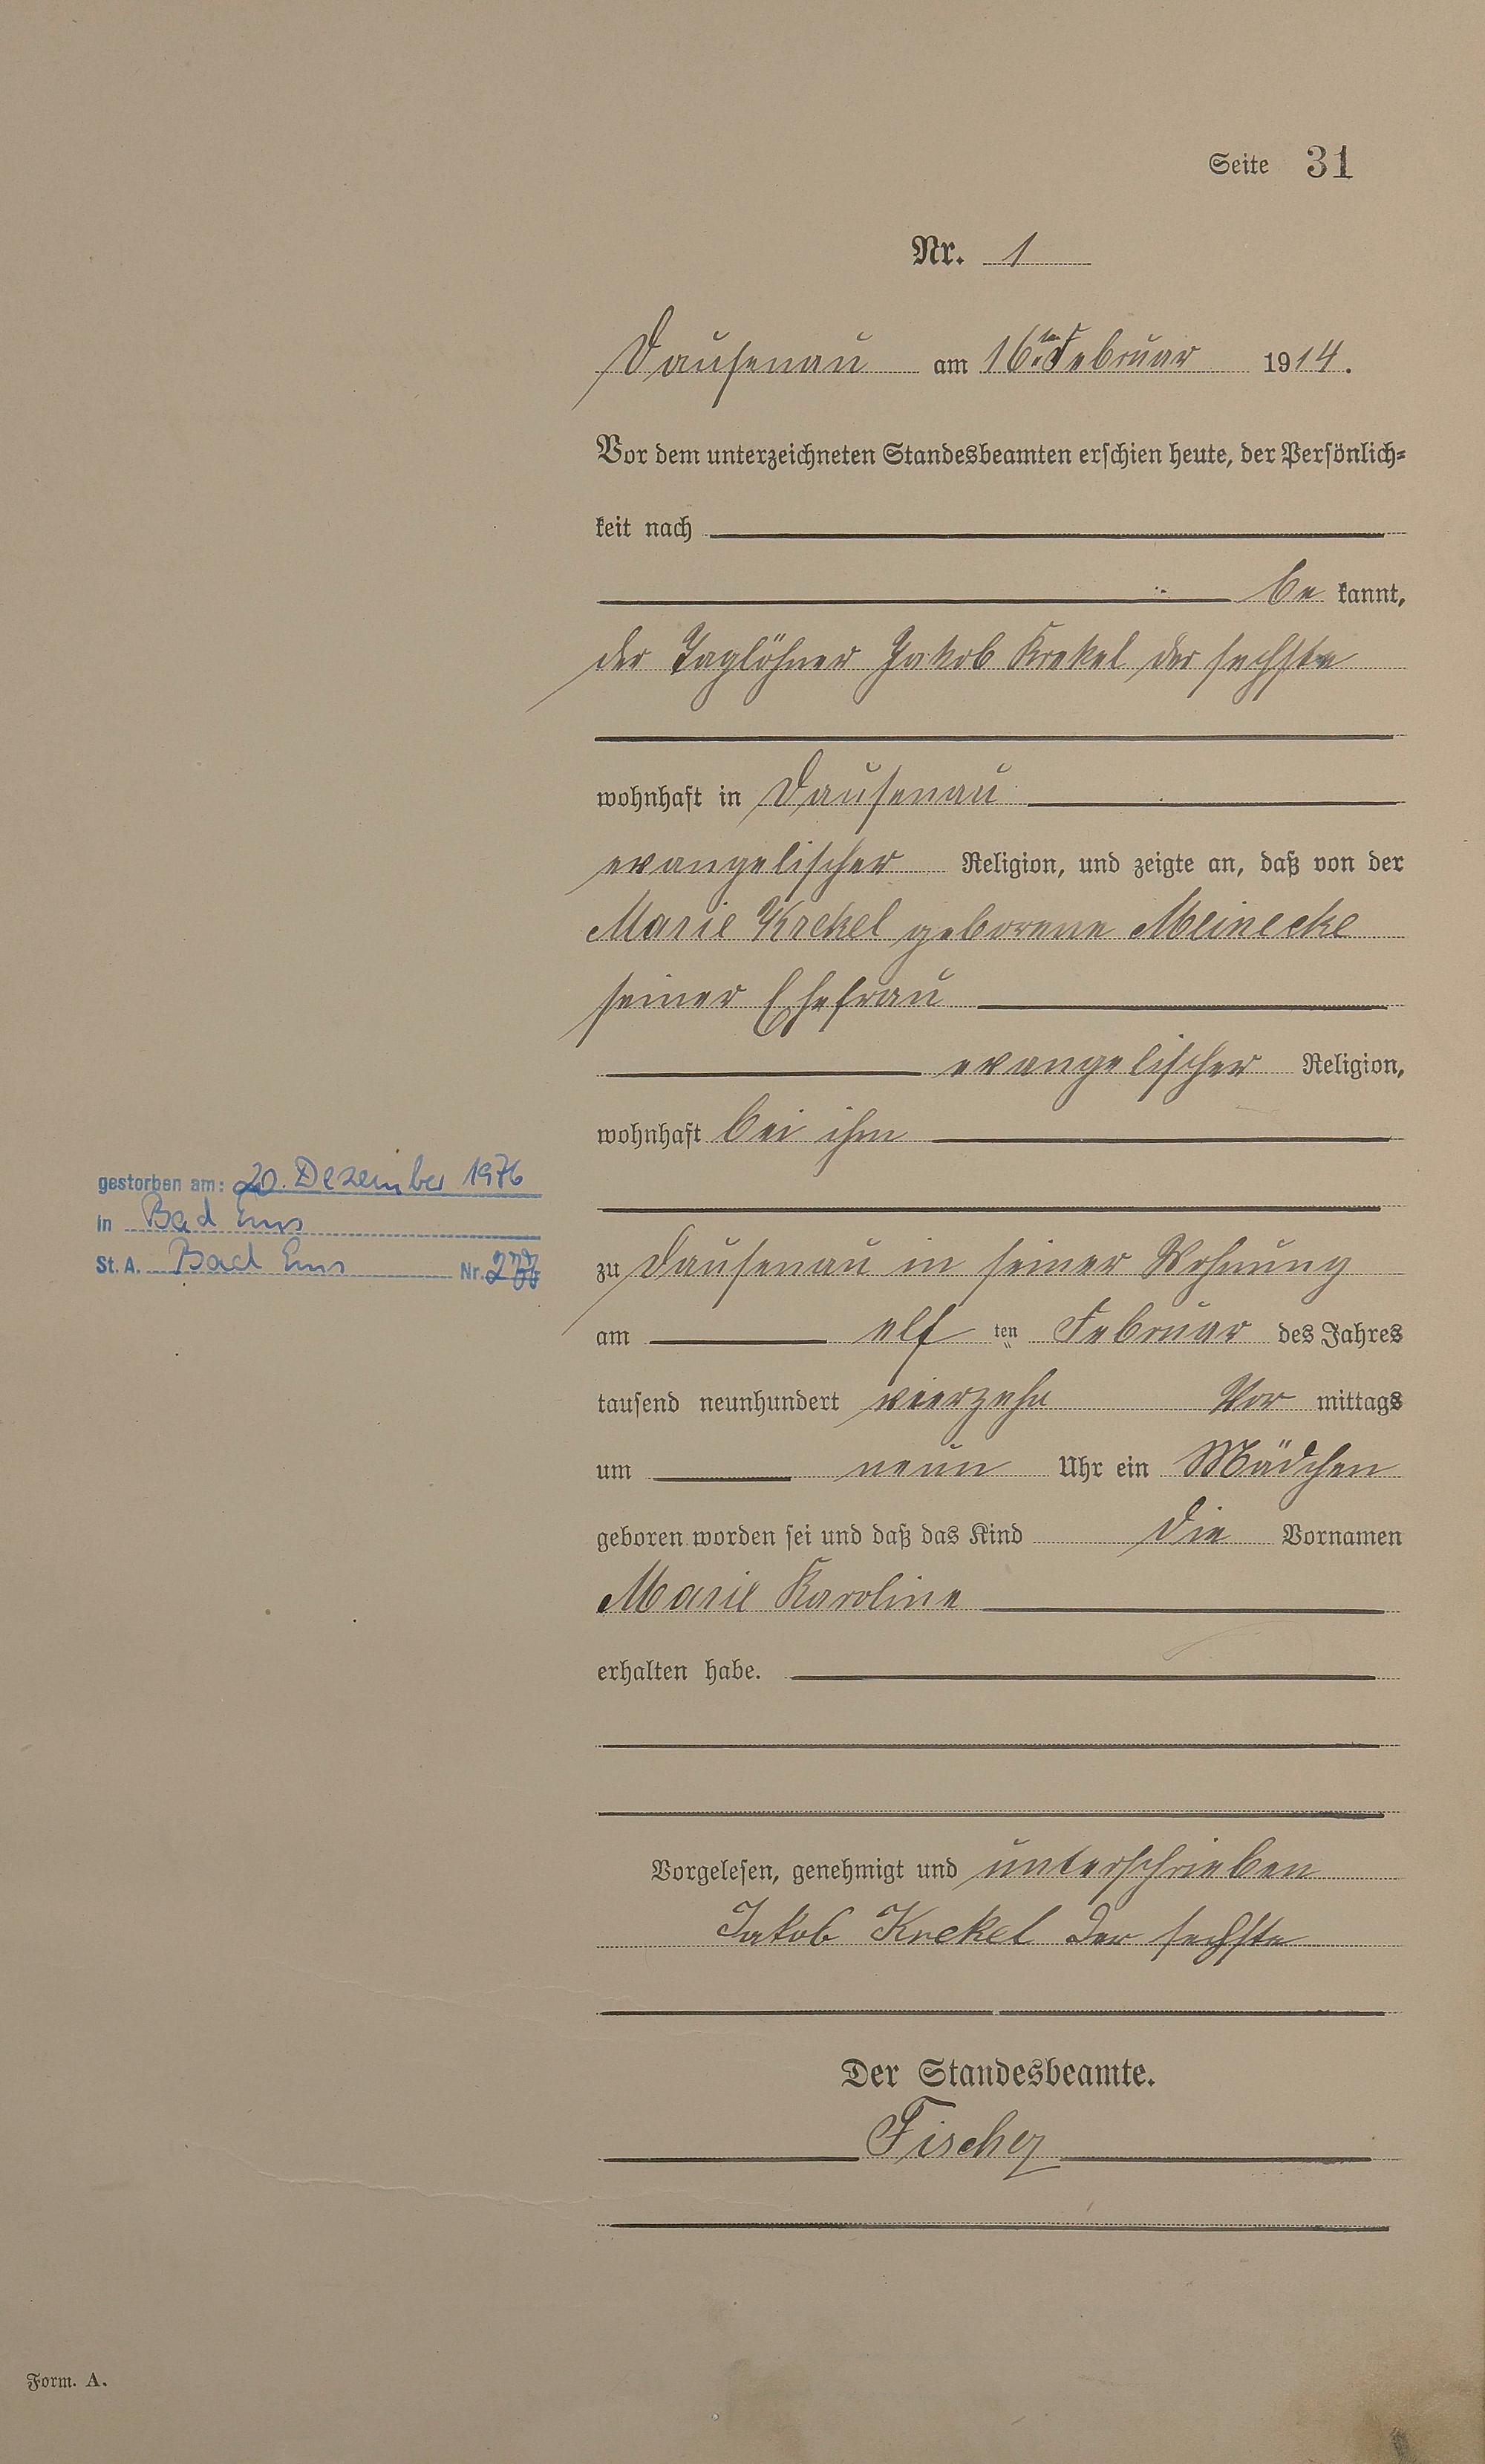 Seite 31
Nr. 1
Dausenau am 16ten Februar 1914.
Vor dem unterzeichneten Standesbeamten erschien heute, der Persönlich=
keit nach
be kannt,
der Taglöhner Jakob Krekel der sechste
wohnhaft in Dausenau
evangelischer Religion, und zeigte an, daß von der
Marie Krekel geborene Meinecke
seiner Ehefrau
evangelischer Religion,
wohnhaft bei ihm
zu Dausenau in seiner Wohnung
am elf ten Februar des Jahres
tausend neunhundert vierzehn Vor mittags
um neun Uhr ein Mädchen
geboren worden sei und daß das Kind die Vornamen
Marie Karoline
erhalten habe.
Vorgelesen, genehmigt und unterschrieben
Jakob Krekel der sechste
Der Standesbeamte.
Fischer
gestorben am: 20. Dezember 1976
in Bad Ems
St. A. Bad Ems Nr.
Form. A.